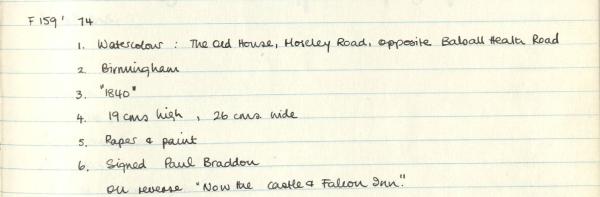 F 159' 74
1. Watercolour : The Old House, Moseley Road, opposite Balsall Heath Road
2. Birmingham
3. "1840"
4. 19 cms high , 26 cms wide
5. Paper & paint
6. Signed Paul Braddon
On reverse "Now the Castle & Falcon Inn."